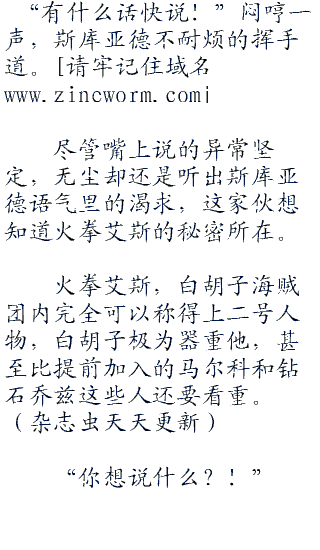 “有什么话快说！”闷哼一
声，斯库亚德不耐烦的挥手
道。[请牢记住域名
www.zincworm.com|
尽管嘴上说的异常坚
定，无尘却还是听出斯库亚
德语气里的渴求，这家伙想
知道火拳艾斯的秘密所在。
火拳艾斯，白胡子海贼
团内完全可以称得上二号人
物，白胡子极为器重他，甚
至比提前加入的马尔科和钻
石乔兹这些人还要看重。
（杂志虫天天更新）
“你想说什么？！”